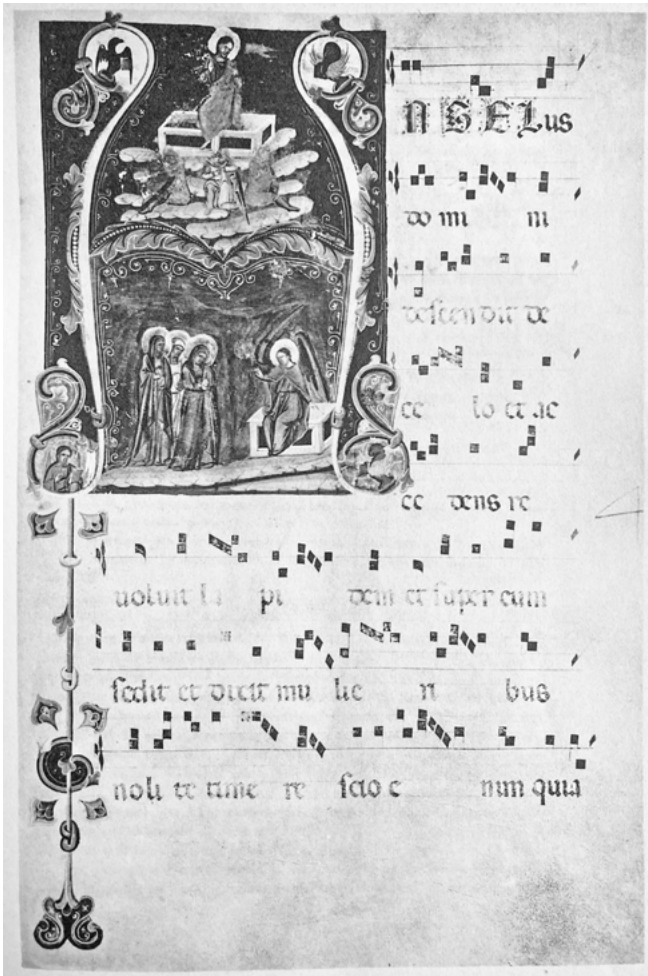 ANGELus
do mi ni
descendit de
ce lo et ac
ce dens re
uoluit la pi dem et super eum
sedit et dixit mu lie ri bus
noli te time re scio e nim quia